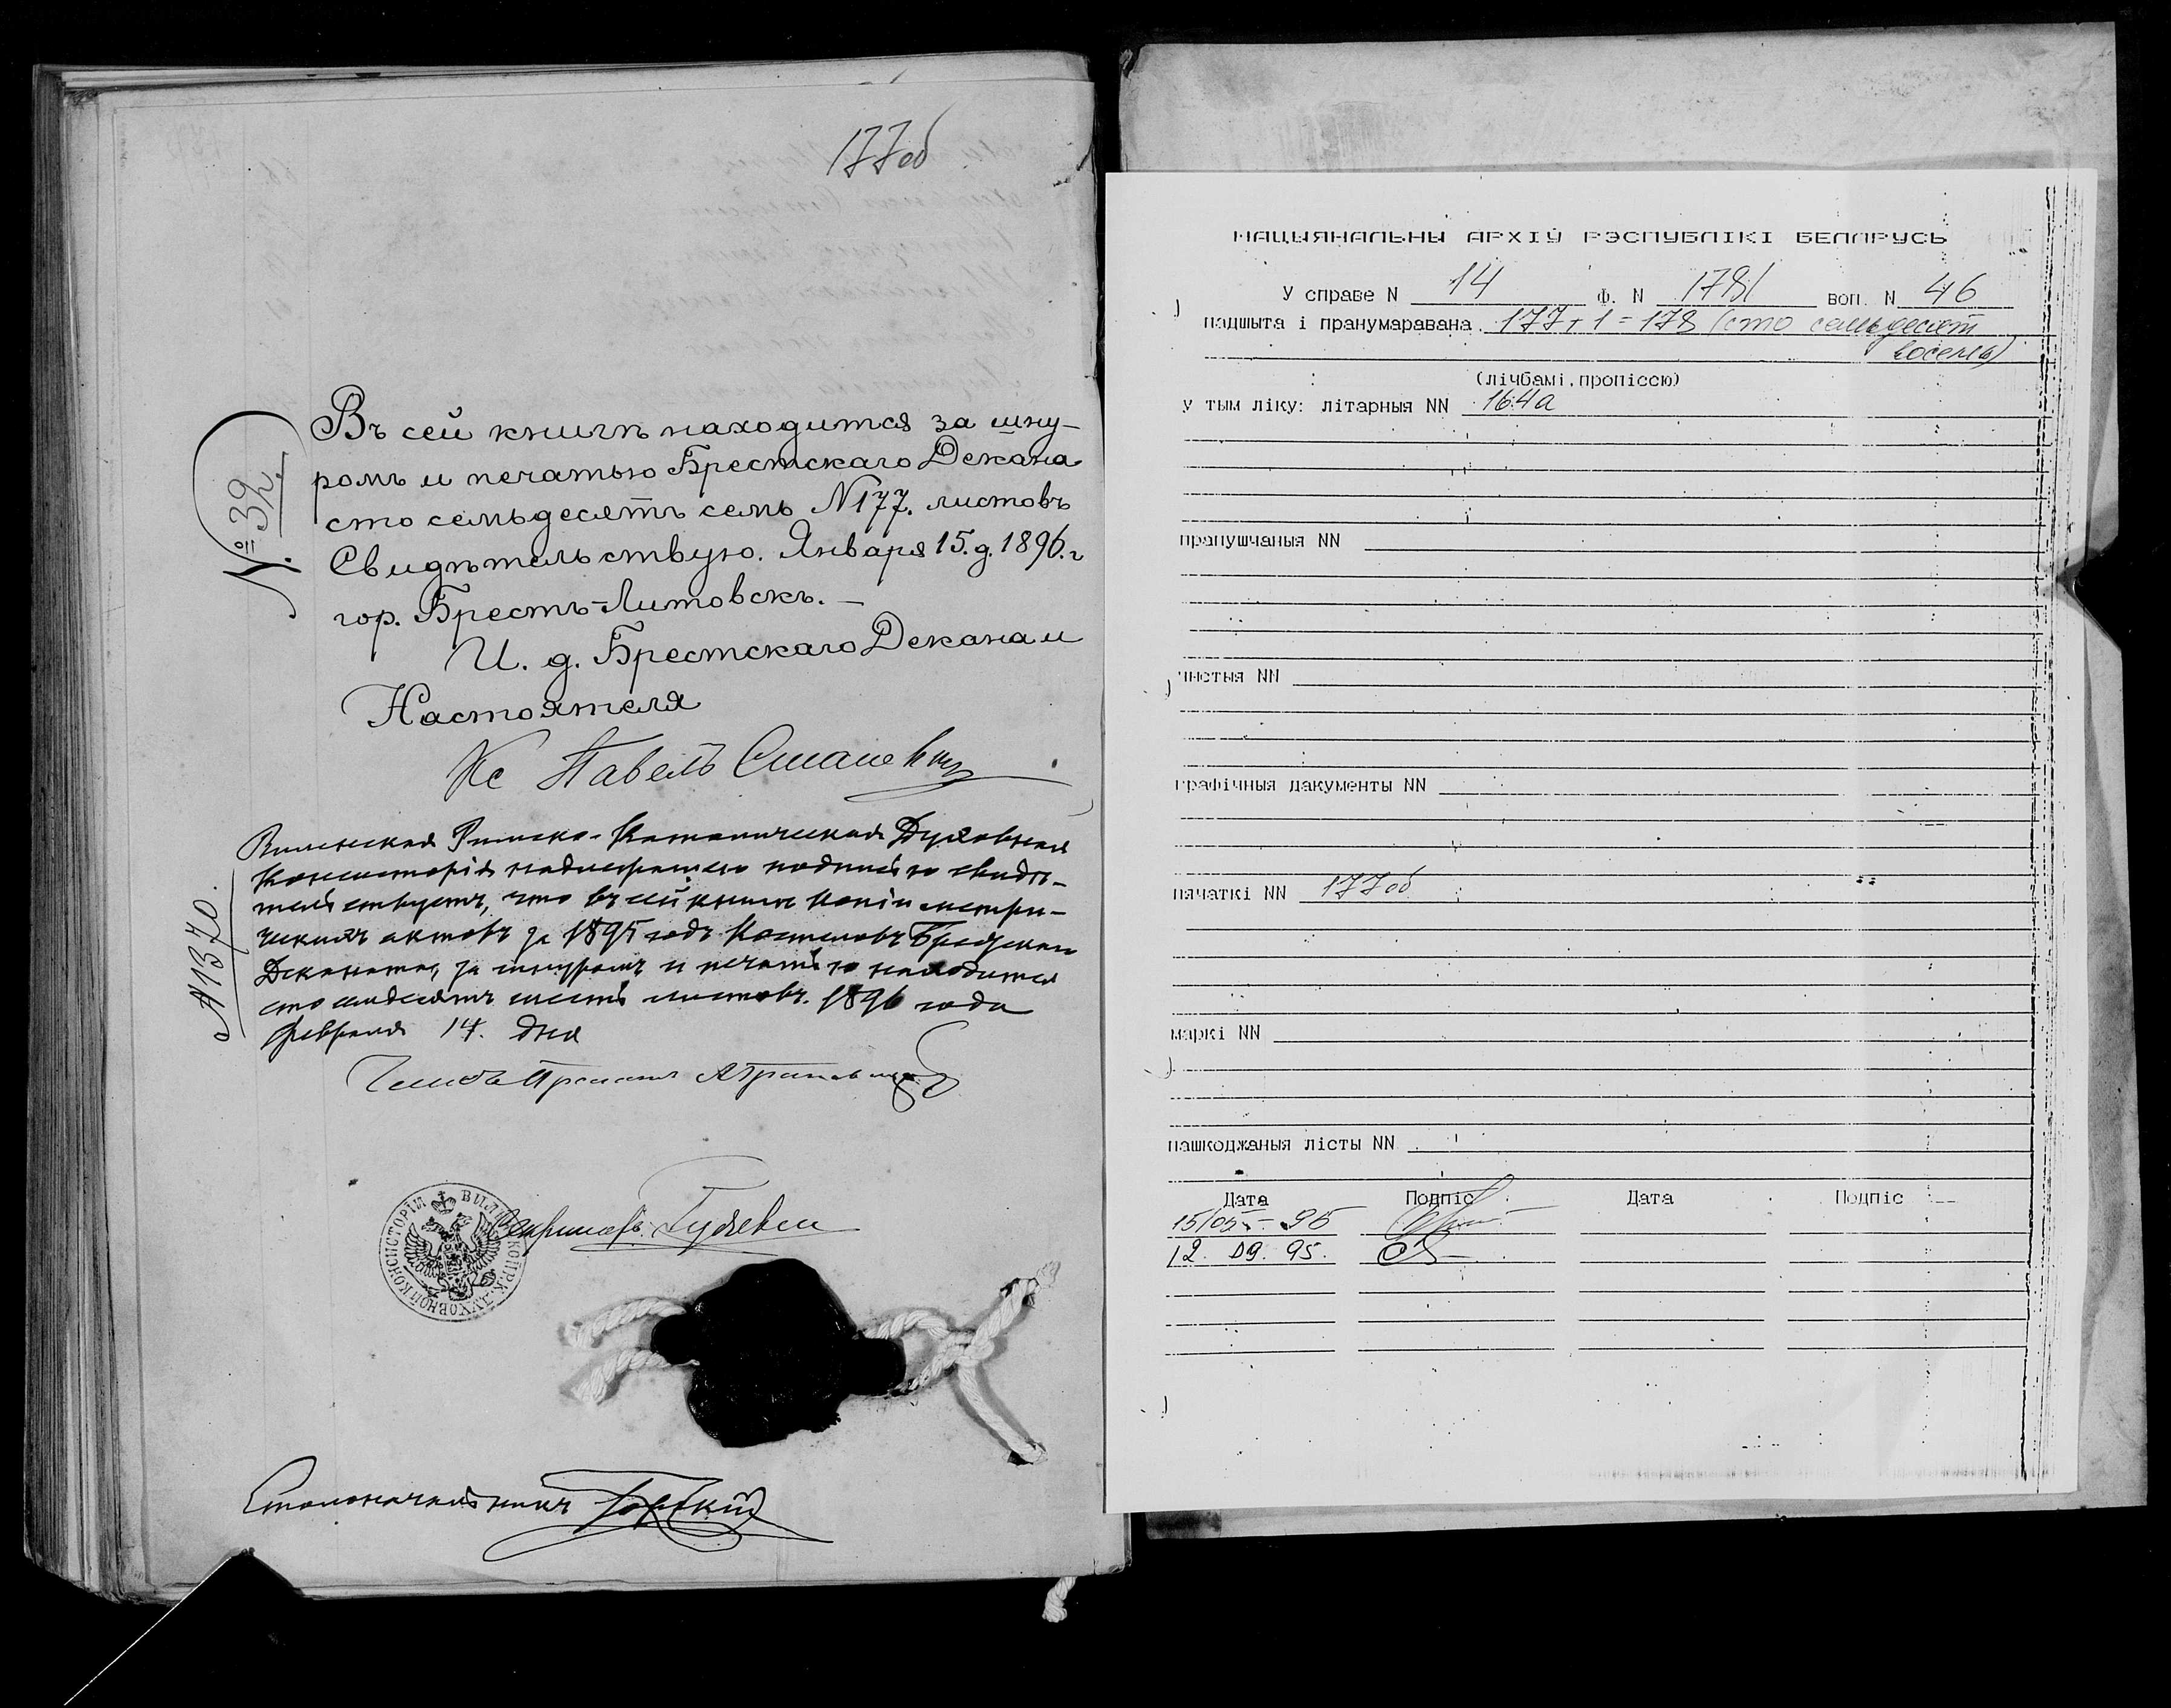 177об
№ 32.
Въ сей книгѣ находится за шну-
ромъ и печатью Брестскаго Декана
сто семьдесятъ семь N177. листовъ
Свидѣтельствую. Января 15. д. 1896. г
гор. Брестъ-Литовскъ. —
И. д. Брестскаго Декана и
Настоятеля
Кс Павелъ
№ 1370.
Виленская Римско-Католическая Духовная
Консисторія надлежащею подписью свидѣ-
тельствуетъ, что въ сей книгѣ копіи метри-
ческихъ актовъ за 1895 годъ Костеловъ Брестскаго
Деканата, за шнуромъ и печатью находится
сто листовъ. 1896 года
февраля 14. дня
Членъ
Секретарь
Столоначальникъ
НАЦЫЯНАЛЬНЫ АРХІЎ РЭСПУБЛІКІ БЕЛАРУСЬ
У справе N 14 Ф. N 1781 воп. N 46
падшыта і пранумаравана 177+1=178 (сто семьдесят
восемь)
(лічбамі, пропіссю)
у тым ліку: літарныя NN 164а
прапушчаныя NN
чыстыя NN
графічныя дакументы NN
пячаткі NN 177об
маркі NN
пашкоджаныя лісты NN
Дата Подпіс Дата Подпіс
12. 09. 95.